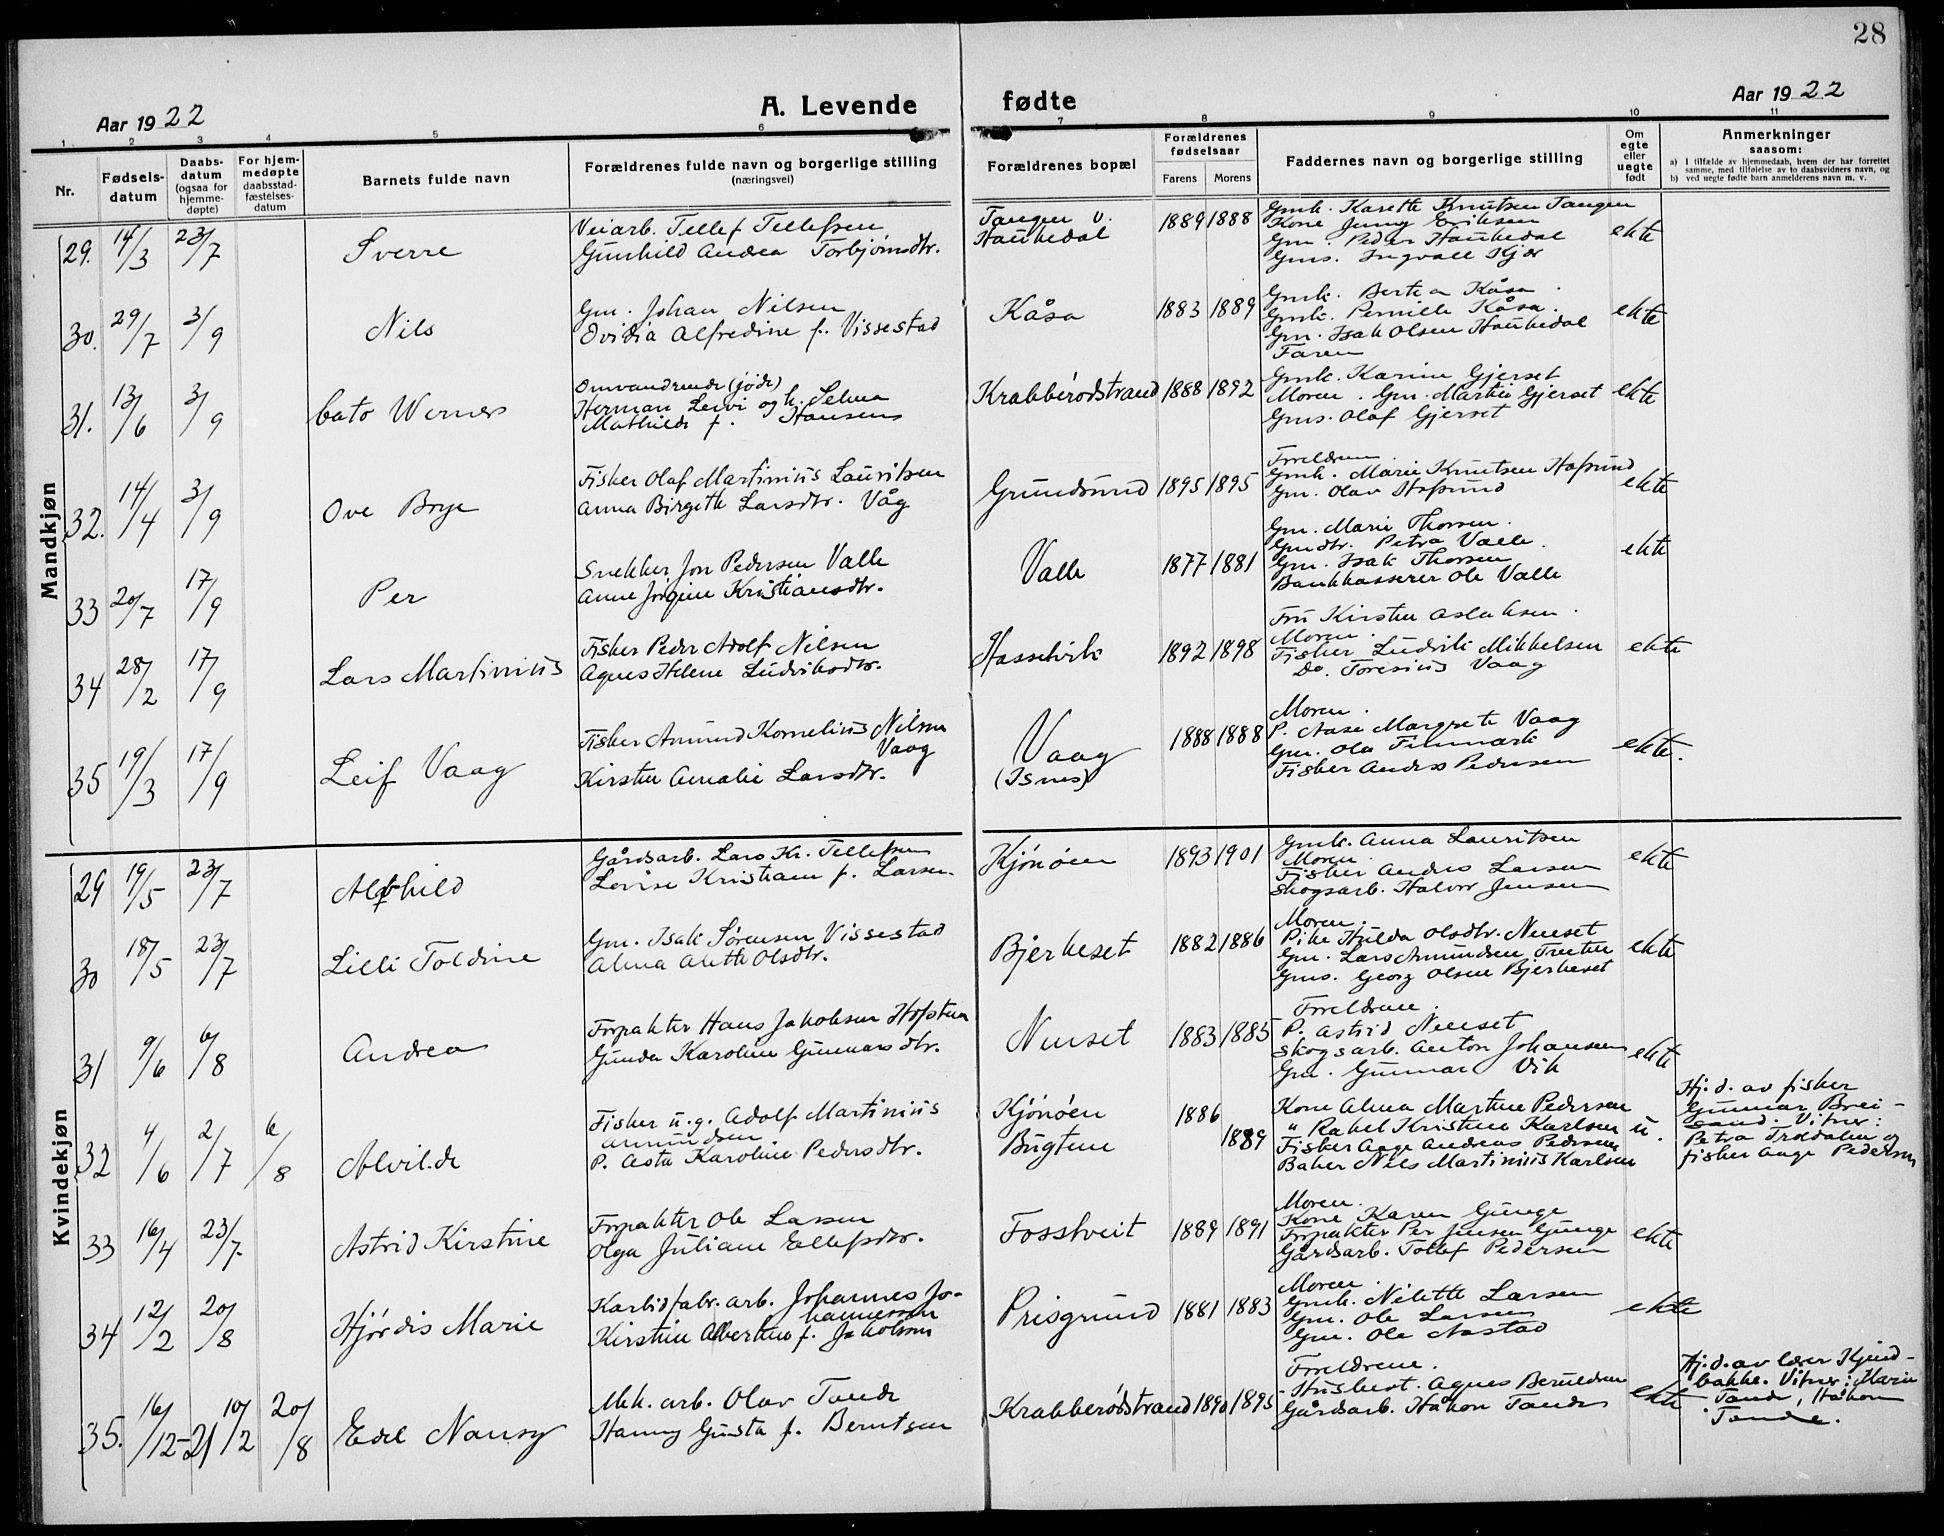 28
Aar 1922
A. Levende fødte
Aar 1922
1. 2 3 4 5 6 7 8 9 10 11
Nr.
Fødsels-
datum
Daabs-
datum
(ogsaa for
hjemme-
døpte)
For hjem-
medøpte
daabsstad-
fæstelses-
datum
Barnets fulde navn
Forældrenes fulde navn og borgerlige stilling
(næringsvei)
Forældrenes bopæl
Forældrenes
fødselsaar
Farens Morens
Faddernes navn og borgerlige stilling
Om
egte
eller
uegte
født
Anmerkninger
saasom:
a) I tilfælde av hjemmedaab, hvem der har forrettet
samme, med tilføielse av to daabsvidners navn, og
b) ved uegte fødte barn anmelderens navn m. v.
Mandkjøn
29. 14/3 23/7 Sverre
Veiarb. Tellef Tellefsen
Gunhild Andrea Torbjørnsdtr.
Tangen v.
Haukedal
1889 1888
Gmk. Karethe Knutsen Tangen
Kone Jenny Eriksen
Gm. Peder Haukedal
Gms. Ingvald Kjær
ekte
30. 29/7 3/9 Nils
Gm. Johan Nilsen
Ovidia Alfredine f. Vissestad
Kåsa
1883 1889
Gmk. Berthe Kåsa.
Gmk. Pernille Kåsa.
Gm. Isak Olsen Haukedal
Faren
ekte
31. 13/6 3/9 Cato Werner
Omvandrende (jøde)
Herman Levi og h. Selma
Mathilde f. Hansen
Krabberødstrand
1888 1892
Gmk. Karine Gjerset
Moren. Gm. Martin Gjerset
Gms. Olaf Gjerset
ekte
32. 14/4 3/9 Ove Brye
Fisher Olaf Martinius Lauritsen
Anna Birgethe Larsdtr. Våg
Grundsund
1895 1895
Foreldrene.
Gmk. Marie Knutsen Hafsund
Gm. Olav Hafsund
ekte
33 20/7 17/9 Per
Snekker Jon Pedersen Valle
Anne Jørgine Kristiansdtr.
Valle
1877 1881
Gm. Marie Thorsen.
Gmdtr. Petra Valle.
Gm. Isak Thorsen
Bankkasserer Ole Valle
ekte
34 28/2 17/9 Lars Martinius
Fisker Peder Adolf Nilsen
Agnes Helene Ludviksdtr.
Hasselvik
1892 1898
Fru Kirsten Aslaksen.
Moren.
Fisker Ludvik Mikkelsen
Do. Toresius Vaag
ekte
35 19/3 17/9 Leif Vaag
Fisker Amund Kornelius Nilsen
Vaag
Kirsten Amalie Larsdtr.
Vaag
(Isnes)
1888 1888
Moren.
P. Aase Margrete Vaag
Gm. Ola Finmark
Fisker Anders Pedersen
ekte.
Kvindekjøn
29 19/5 23/7 Alfhild
Gårdsarb. Lars Kr. Tellefsen
Lovise Kristiane f. Larsen.
Kjønøen
1893 1901
Gmk. Anna Lauritsen
Moren.
Fisker Anders Larsen
Skogsarb. Halvor Jensen
ekte
30 18/5 23/7 Lilli Toldine
Gm. Isak Sørensen Vissestad
Alma Alethe Olsdtr.
Bjerkeset
1882 1886
Moren.
Pike Hulda Olsdtr. Nenset
Gm. Lars Amundsen
Gms. Georg Olsen Bjerkeset
ekte
31 9/6 6/8 Andrea
Forpakter Hans Jakobsen
Gunda Karoline Gunnarsdtr.
Nenset
1883 1885
Foreldrene.
P. Astrid Nenset
Skogsarb. Anton Johansen
Gm. Gunnar Vik
ekte
32 4/6 2/7 6/8 Alvilde
Fisker u.g. Adolf Martinius
Amundsen
P. Asta Karoline Pedersdtr.
Kjønøen
Bugten
1886
1889
Kone Alma Martine Pedersen
" Rakel Kristine Karlsen
Fisker Aage Andreas Pedersen
Baker Nils Martinius Karlsen
u.
Hj. d. av fisker
Gunnar Brei-
sand. Vitner:
Petra Trosdalen og
fisker Aage Pedersen
33 16/4 23/7. Astrid Kirstine
Forpakter Ole Larsen
Olga Juliane Ellefsdtr.
Fosstveit
1889 1891
Moren.
Kone Karen Gunge
Forpakter Per Jensen Gunge
Gårdsarb. Tollef Pedersen
ekte
34 12/2 20/8 Hjørdis Marie
Karbidfabr. arb. Johannes Jo-
hannessen
Kirstine Albertine f. Jakobsen
Prisgrund
1881 1883
Moren.
Gmk. Nilethe Larsen
Gm. Ole Larsen
Gm. Ole Nastad
ekte
35. 16/12-21 10/2 20/8 Edel Nansy
Mek. arb. Olav Tande
Hanny Gusta f. Berntsen
Krabberødstrand
1890 1895
Foreldrene.
Husbest. Agnes Beruldsen
Gårdsarb. Håkon Tande
ekte
Hj. d. av lærer
bakke. Vitner: Marie
Tande, Håkon
Tande.